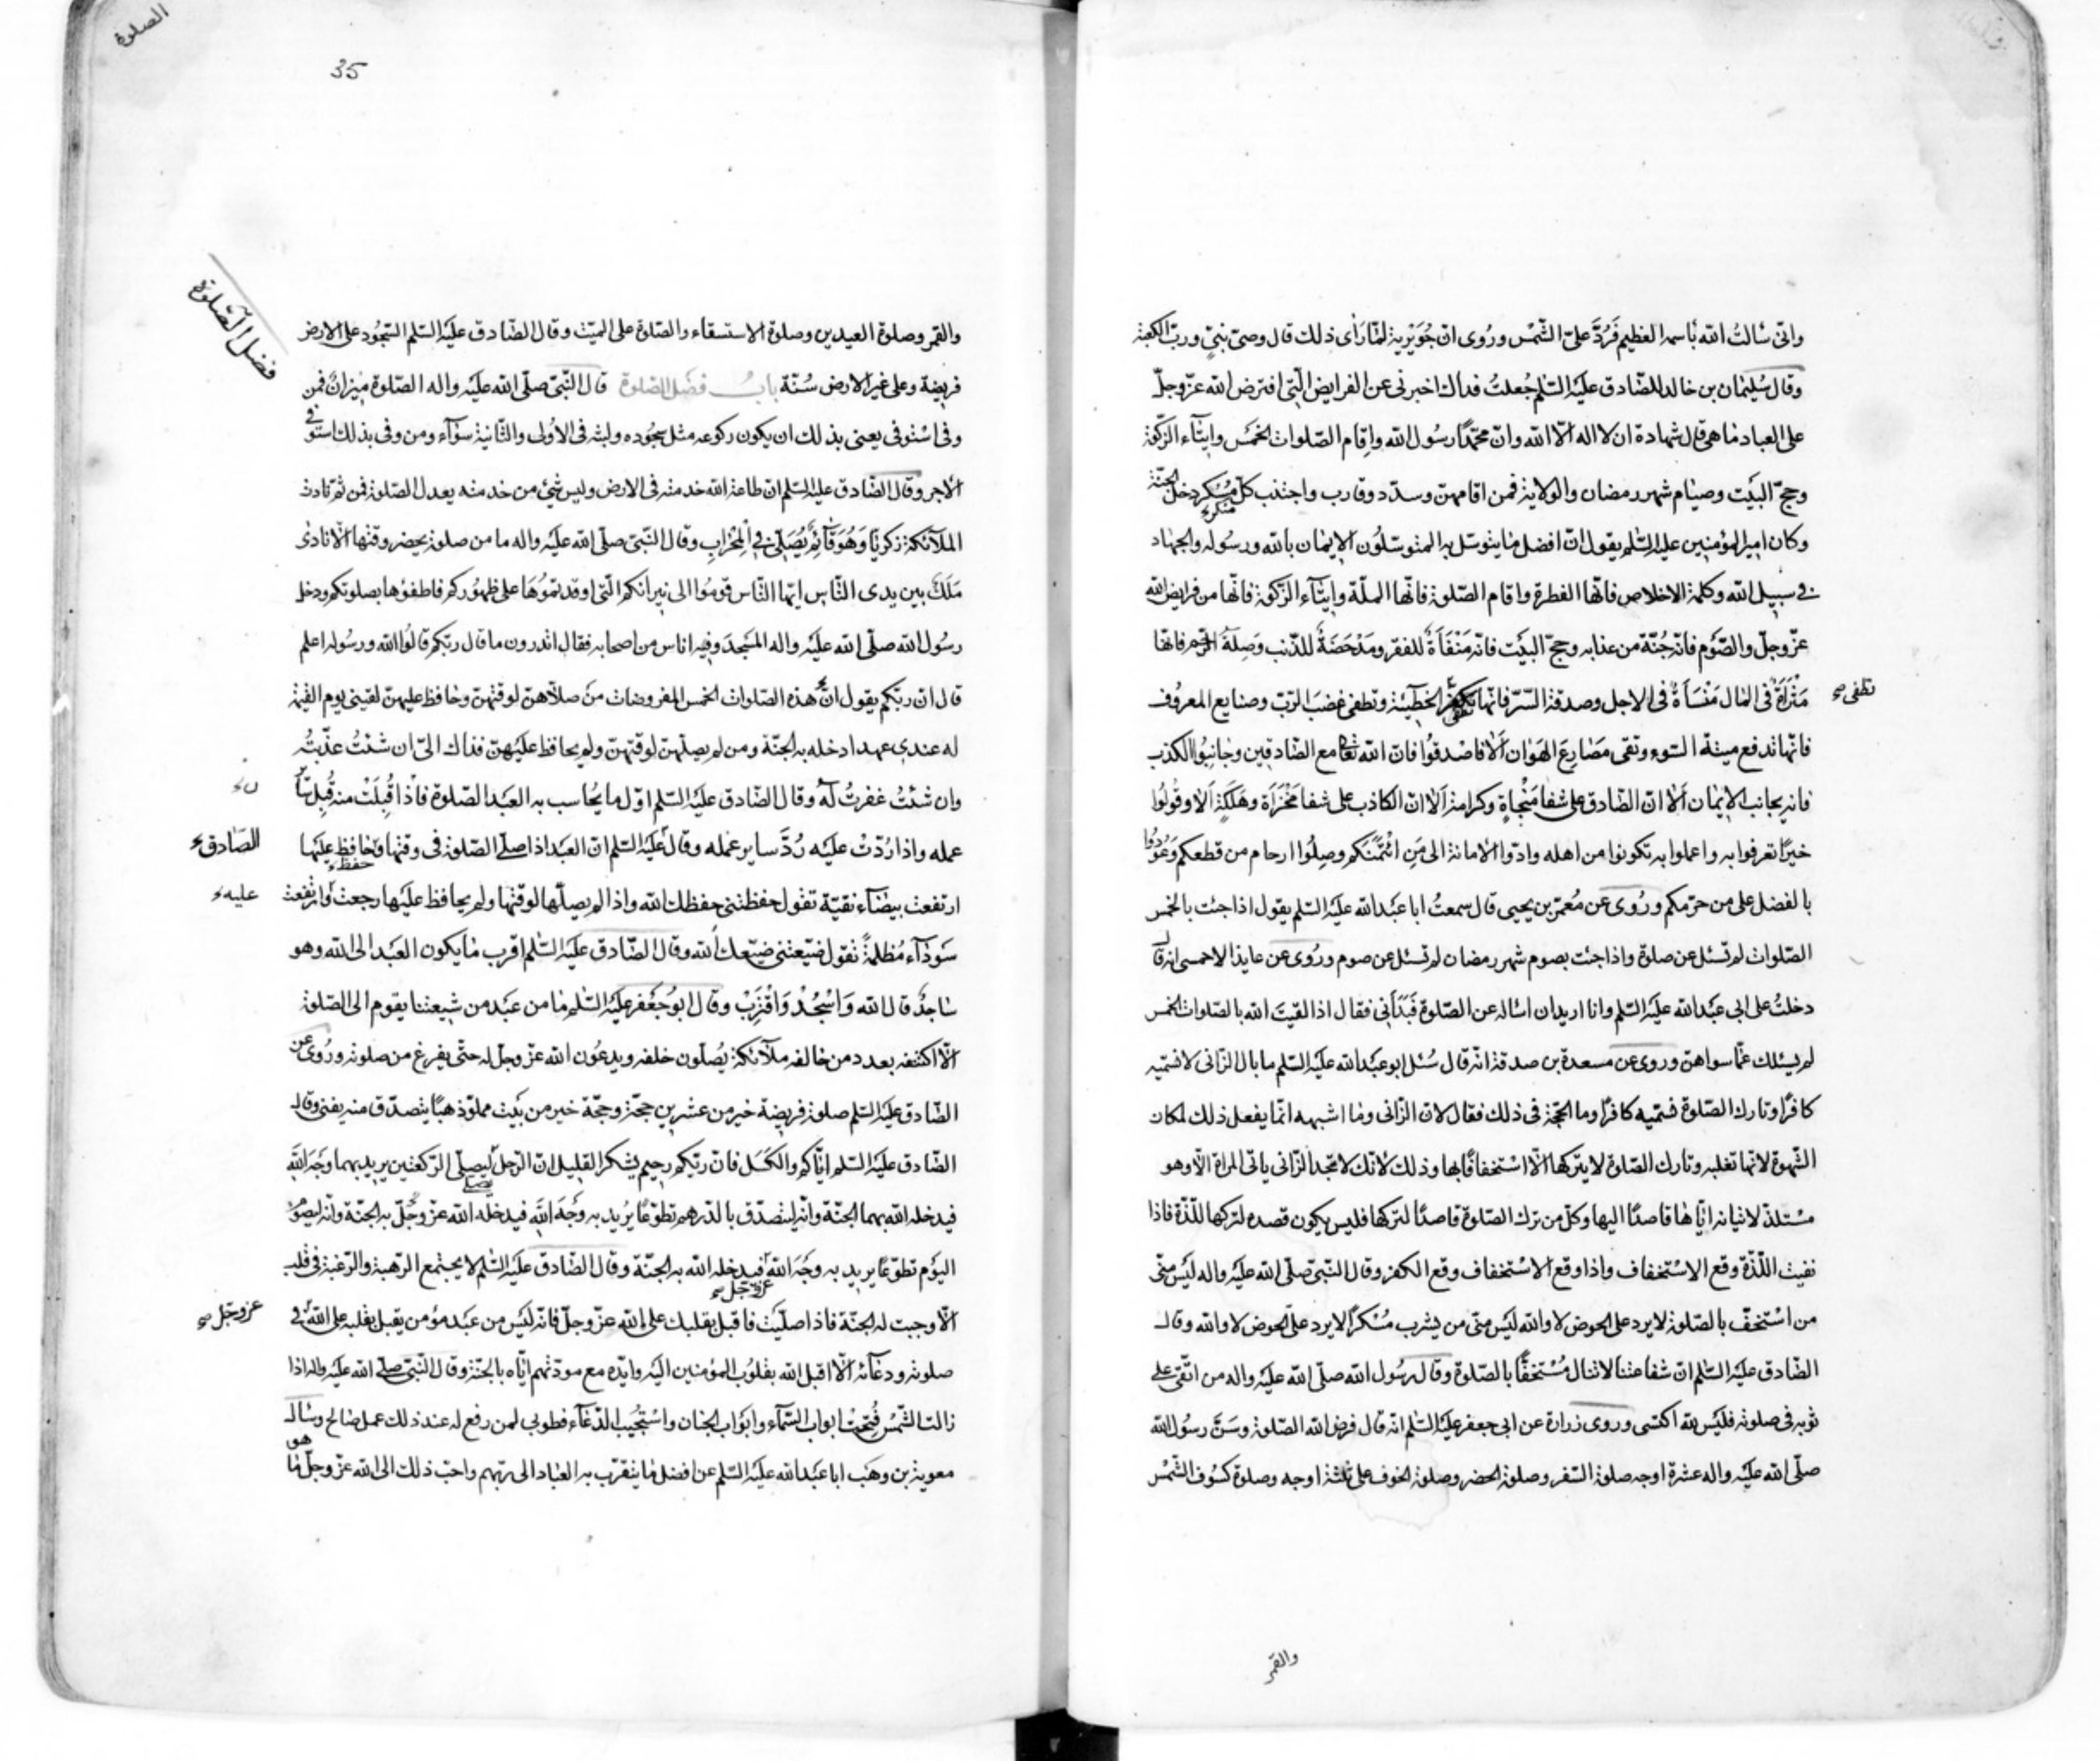 وانى سالتُ الله باسمه العظيم فَرُدَّ علىّ الشّمس ورُوى ان جُوَيْرِية لمّا رأى ذلك قال وصىّ نبىٍّ وربّ الكعبة
وقال سُلَيمان بن خالد للصّادق عليه السّلم جُعلتُ فداك اخبرنى عن الفرايض الّتى افترض الله عزّ وجلّ
على العباد ما هى قال شهادة ان لا اله الّا الله وانّ محمّدًا رسُول الله واقام الصّلوات الخمس وايتاء الزّكوة
وحجّ البيت وصيام شهر رمضان والولاية فمن اقامهنّ وسدّد وقارب واجتنب كلّ مُسْكر دخل الجنّة
منكر
وكان امير المؤمنين عليه السّلم يقول انّ افضل ما يتوسّل به المتوسّلون الايمان بالله ورسوله والجهاد
فى سبيل الله وكلمة الاخلاص فانّها الفطرة واقام الصّلوة فانّها الملّة وايتآء الزّكوة فانّها من فرايض الله
عزّ وجلّ والصّوم فانّه جُنّة من عذابه وحجّ البيت فانّه مَنْفَاةٌ للفقر ومَدْحَضَةٌ للذّنب وصِلة الرّحم فانّها
مَثْرَاةٌ فى المال مَنْسَاةٌ فى الاجل وصدقة السّرّ فانّها تكفّر الخطيئة وتطفى غضبَ الرّبّ وصنايع المعروف
تطفى
فانّها تدفع ميتة السّوء وتقى مَصَارِعَ الهَوَان اَلا فاصْدقُوا فان الله تعا مع الصّادقين وجانبُوا الكذب
فانه يجانب الايمان اَلَا انّ الصّادق على شفا مَنْجاةٍ وكرامة اَلَا انّ الكاذب على شفا مَخْزَاةٍ وهَلَكَةٍ اَلا وقُولُوا
خيرًا تعرفوا به واعملوا به تكونوا من اهله وادّوا الامانة الى مَنِ ائْتَمَنَكُم وصِلُوا ارحام من قطعكم وَعُودُوا
بالفضل على من حرمكم ورُوى عن مُعمّر بن يحيى قال سمعتُ ابا عبد الله عليه السّلم يقول اذا جئت بالخمس
الصّلوات لم تسئل عن صلوة واذا جئت بصوم شهر رمضان لم تسئل عن صوم ورُوى عن عايذ الاحمسى انه قال
دخلتُ على ابى عبد الله عليه السّلم وانا اريد ان اساله عن الصّلوة فَبَدَأَنِى فقال اذا لقيتَ الله بالصّلوات الخمس
لم يسئلك عمّا سواهنّ وروى عن مسعدة بن صدقة انّه قال سُئل ابو عبد الله عليه السّلم ما بال الزّانى لا نسمّيه
كافرًا وتارك الصّلوة نسمّيه كافرًا وما الحجّة فى ذلك فقال لانّ الزّانى وما اشبهه انّما يفعل ذلك لمكان
الشّهوة لانّها تغلبه وتارك الصّلوة لا يتركها الّا استخفافًا بها وذلك لانّك لا تجد الزّانى ياتى المراة الّا وهو
مُستلذّ لاتيانه ايّاها قاصدًا اليها وكلّ من ترك الصّلوة قاصدًا لتركها فليس يكون قصده لتركها للّذّة فاذا
نفيت اللّذّة وقع الاستخفاف واذا وقع الاستخفاف وقع الكفر وقال النّبىّ صلّى الله عليه واله ليس منّى
من استخفّ بالصّلوة لا يرد علىّ الحوض لا والله ليس منّى من يشرب مُسْكرًا لا يرد علىّ الحوض لا والله وقال
الصّادق عليه السّلم انّ شفاعتنا لا تنال مُسْتخفًّا بالصّلوة وقال رسُول الله صلّى الله عليه واله من اتّقى على
ثوبه فى صلوته فليس لله اكتسى وروى زرارة عن ابى جعفر عليه السّلم انه قال فرض الله الصّلوة وسَنّ رسُول الله
صلّى الله عليه واله عشرة اوجه صلوة السّفر وصلوة الحضر وصلوة الخوف على ثلثة اوجه وصلوة كسُوف الشّمس
والقمر
الصلوة
35
فضل الصّلوة
والقمر وصلوة العيدين وصلوة الاستسقاء والصّلوة على الميّت وقال الصّادق عليه السّلم السّجُود على الارض
فريضة وعلى غير الارض سُنّة بابُ فضل الصّلوة قال النّبىّ صلّى الله عليه واله الصّلوة ميزانٌ فمن
وفى استوفى يعنى بذلك ان يكون ركوعه مثل سجُوده ولبثه فى الاُولى والثّانية سوآء ومن وفى بذلك استوفى
الاجر وقال الصّادق عليه السّلم انّ طاعة الله خدمته فى الارض وليس شئ من خدمته يعدل الصّلوة فمن ثمّ نادت
الملآئكة زكريّا وَهُوَ قَآئِمٌ يُصَلِّى فِى الْمِحْرَابِ وقال النّبىّ صلّى الله عليه واله ما من صلوة يحضر وقتها الّا نادى
مَلَكٌ بين يدى النّاس ايّها النّاس قومُوا الى نيرانكم الّتى اوقدتمُوهَا على ظهُوركم فاطفئوها بصلوتكم ودخل
رسُول الله صلّى الله عليه واله المسْجدَ وفيه اناس من اصحابه فقال اتدرون ما قال ربّكم قالُوا الله ورسُوله اعلم
قال انّ ربّكم يقول انّ هذه الصّلوات الخمس المفروضات من صلّاهنّ لوقتهنّ وحافظ عليهنّ لقينى يوم القيمة
له عندى عهد ادخله به الجنّة ومن لم يصلّهنّ لوقتهنّ ولم يحافظ عليهنّ فذاك الىّ ان شئتُ عذّبتُه
وان شئتُ غفرتُ له وقال الصّادق عليه السّلم اوّل ما يُحاسب به العبد الصّلوة فاذا قُبِلَتْ منه قُبِل سائر
عمله واذا رُدّتْ عليه رُدَّ ساير عمله وقال عليه السّلم انّ العبد اذا صلّى الصّلوة فى وقتها وحافظ عليها
الصّادق
حفظ
ارتفعت بيضآء نقيّة تقول حفظتنى حفظك الله واذا لم يصلّها لوقتها ولم يحافظ عليها رجعت وارتفعت
عليه
سَودآء مُظلمةً تقول ضيّعتنى ضيّعك الله وقال الصّادق عليه السّلم اقرب ما يكون العبد الى الله وهو
ساجدٌ قال الله وَاسْجُدْ وَاقْتَرِبْ وقال ابُو جعفر عليه السّلم ما من عبد من شيعتنا يقوم الى الصّلوة
الّا اكتنفه بعدد من خالفه ملآئكة يُصلّون خلفه ويدعُون الله عزّ وجلّ له حتّى يفرغ من صلوته ورُوى عن
الصّادق عليه السّلم صلوة فريضة خير من عشرين حجّة وحجّة خير من بيت مملوّ ذهبًا يتصدّق منه يفنى وقال
الصّادق عليه السّلم ايّاكم والكسَل فانّ ربّكم رحيم يشكر القليل انّ الرّجل ليصلّى الرّكعتين يريد بهما وجَه الله
يصلى
فيدخله الله بهما الجنّة وانّه ليتصدّق بالدّرهم تطوّعًا يُريد به وجَه الله فيدخله الله عزّ وجلّ به الجنّة وانّه ليصوم
اليوم تطوّعًا يريد به وجَه الله فيدخله الله به الجنّة وقال الصّادق عليه السّلم لا يجتمع الرّهبة والرّغبة فى قلب
عزّ وجلّ
الّا وجبت له الجنّة فاذا صلّيت فاقبل بقلبك على الله عزّ وجلّ فانّه ليس من عبد مؤمن يقبل بقلبه على الله فى
عز وجل
صلوته ودعآئه الّا اقبل الله بقلُوب المؤمنين اليه وايّده مع مودّتهم ايّاه بالجنّة وقال النّبىّ صلّى الله عليه واله اذا
زالت الشّمسُ فُتِحَتْ ابواب السّمآء وابوَاب الجنان واستُجيب الدّعآء فطوبى لمن رفع له عند ذلك عمل صالح وسال
هو
معوية بن وهَب ابا عبد الله عليه السّلم عن افضل ما يتقرّب به العباد الى ربّهم واحبّ ذلك الى الله عزّ وجلّ ما